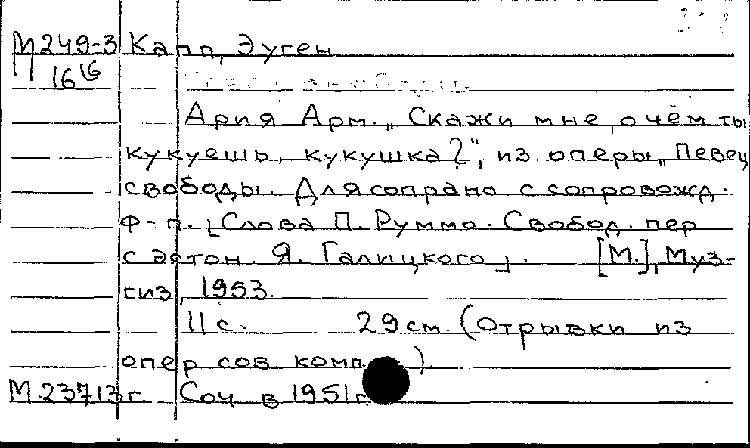 М249-3 Капп, Эуген
16 16
Ария Арм. „Скажи мне, о чём ты
кукуешь, кукушка?", из оперы „Певец
свободы. Для сопрано с сопровожд.
ф-п. [Слова П. Руммо. Свобод. пер
с эстон. Я. Галицкого]. [М.], Муз-
гиз, 1953.
11 с. 29 см. (Отрывки из
опер сов комп.)
М.23713г Соч в 1951г